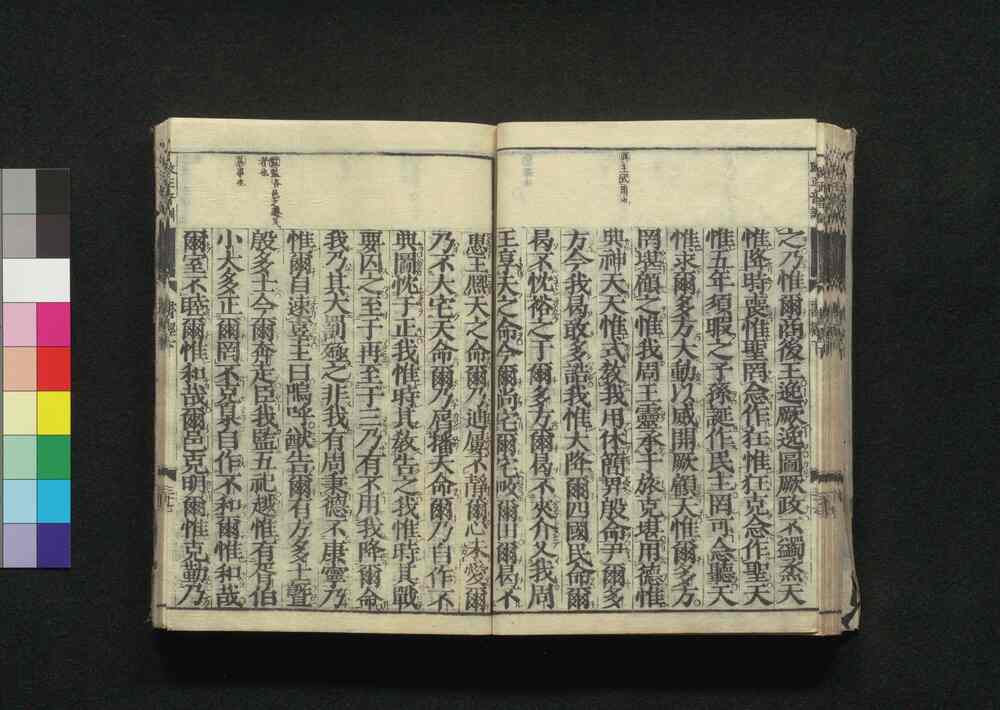 典主式用也
之乃惟爾商後王逸厥逸圖厥政不蠲烝天
惟降時喪惟聖罔念作狂惟狂克念作聖天
惟五年須暇之子孫誕作民主罔可念聽天
惟求爾多方大動以威開厥顧天惟爾多方
罔堪顧之惟我周王靈承于旅克堪用德惟
典神天天惟式教我用休簡畀殷命尹爾多
方今我曷敢多誥我惟大降爾四國民命爾
曷不忱裕之于爾多方爾曷不夾介乂我周
王享天之命今爾尚宅爾宅畋爾田爾曷不
惠王熈天之命爾乃迪屢不靜爾心未愛爾
乃不大宅天命爾乃屑播天命爾乃自作不
典圖忱于正我惟時其教告之我惟時其戰
要囚之至于再至于三乃有不用我降爾命
我乃其大罰殛之非我有周秉德不康寧乃
惟爾自速辜王曰嗚呼猷告爾有方多士曁
殷多士今爾奔走臣我監五祀越惟有胥伯
小大多正爾罔不克臬自作不和爾惟和哉
爾室不睦爾惟和哉爾邑克明爾惟克勤乃
者也
臬事也